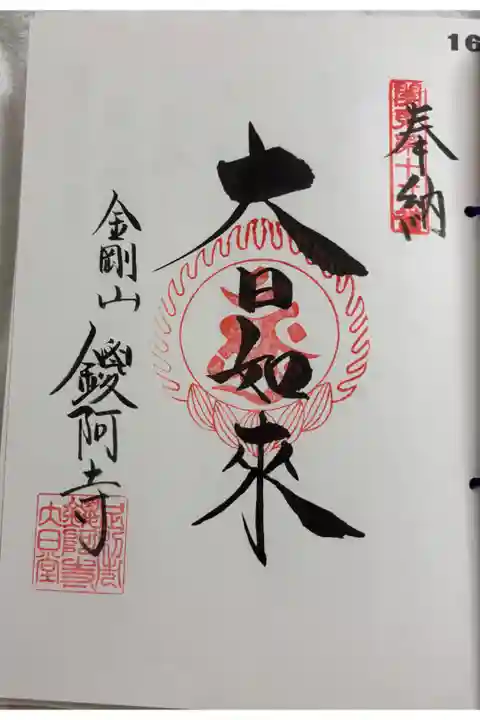 16
奉納
大日如來
金剛山
鑁阿寺
大日堂